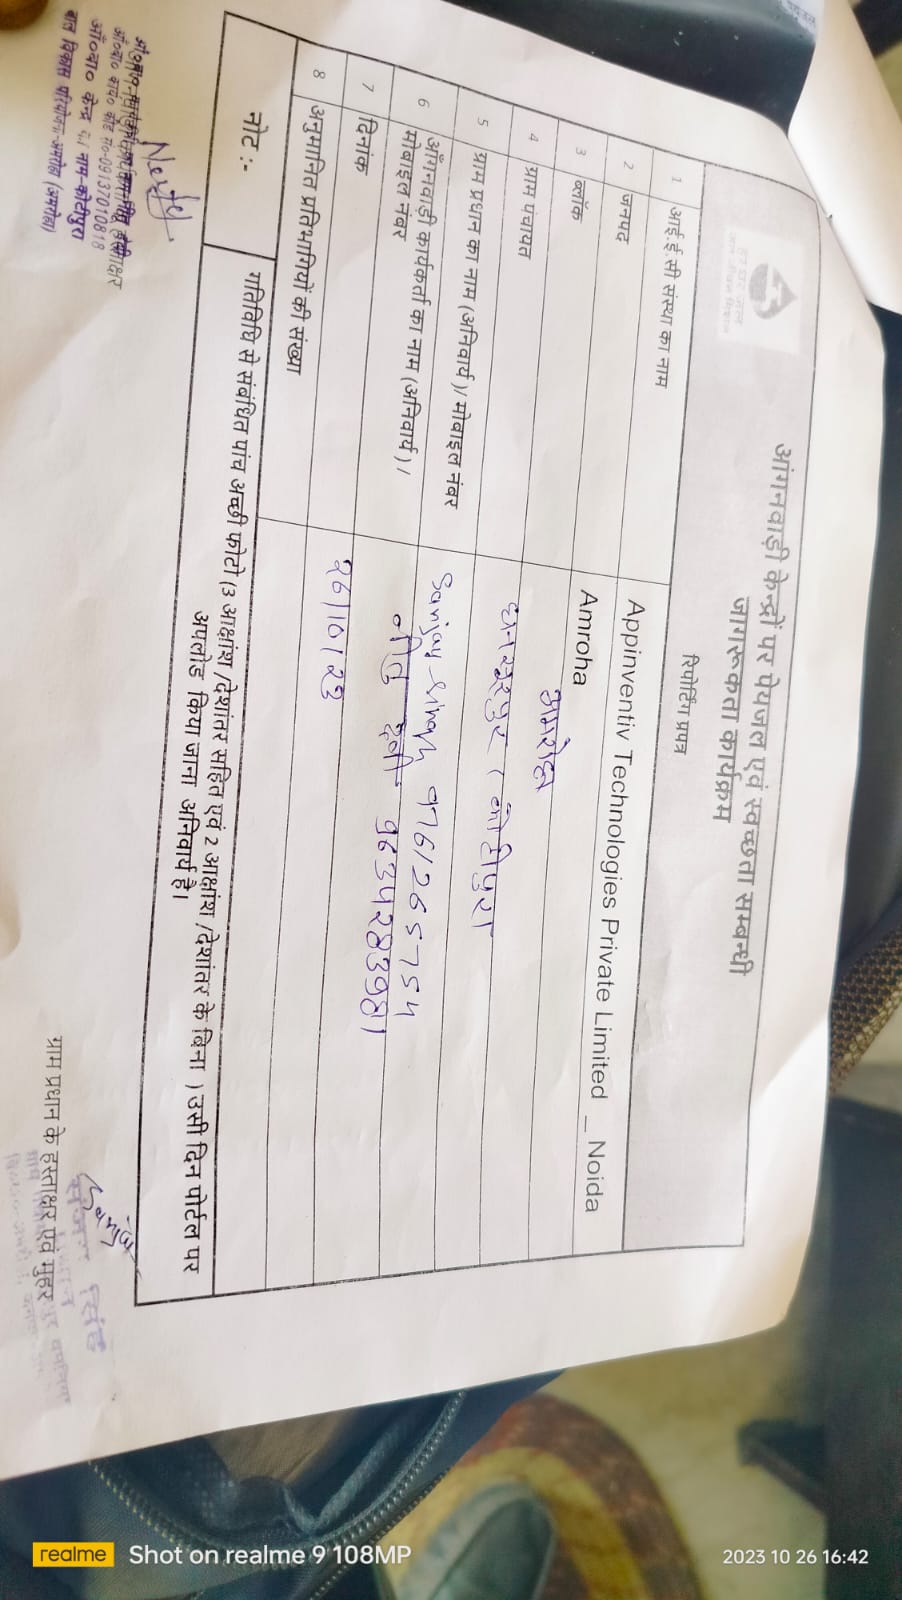 आंगनवाड़ी केन्द्रों पर पेयजल एवं स्वच्छता सम्बन्धी
जागरूकता कार्यक्रम
रिपोर्टिंग प्रपत्र
1 आई.ई.सी संस्था का नाम Appinventiv Technologies Private Limited _ Noida
2 जनपद Amroha
3 ब्लॉक अमरोहा
4 ग्राम पंचायत
5 ग्राम प्रधान का नाम (अनिवार्य)/ मोबाइल नंबर Sanjay Singh 9761265754
6 ऑगनवाड़ी कार्यकर्ता का नाम (अनिवार्य) /
मोबाइल नंबर
7 दिनांक 26/10/23
8 अनुमानित प्रतिभागियों की संख्या
नोट :- गतिविधि से संबंधित पांच अच्छी फोटो (3 आक्षांश /देशांतर सहित एवं 2 आक्षांश /देशांतर के बिना ) उसी दिन पोर्टल पर
अपलोड किया जाना अनिवार्य है।
ग्राम प्रधान के हस्ताक्षर एवं मुहर
बाल विकास परियोजना-अमरोहा (अमरोहा)
realme Shot on realme 9 108MP
2023 10 26 16:42